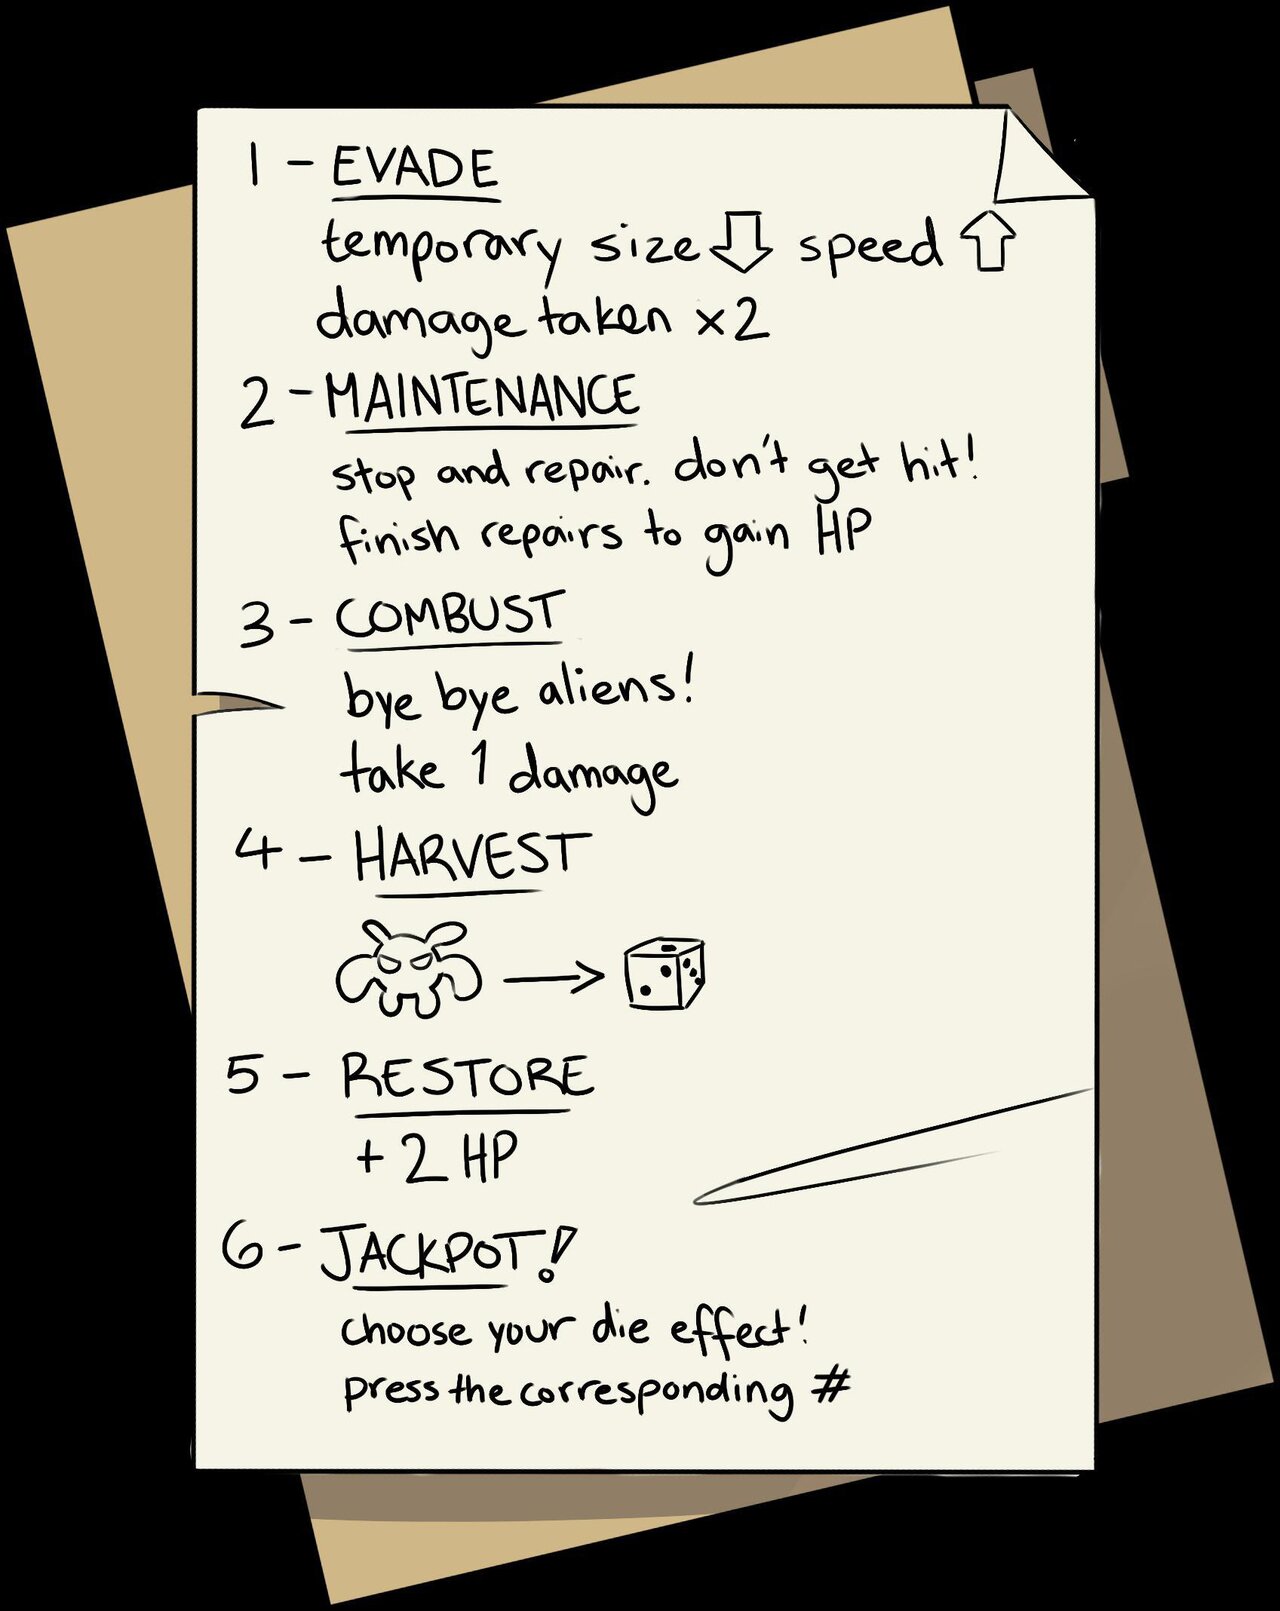 1 - EVADE
temporary size ⇩ speed ⇧
damage taken x2
2 - MAINTENANCE
stop and repair. don't get hit!
finish repairs to gain HP
3 - COMBUST
bye bye aliens!
take 1 damage
4 - HARVEST
5 - RESTORE
+ 2 HP
6 - JACKPOT!
choose your die effect!
press the corresponding #